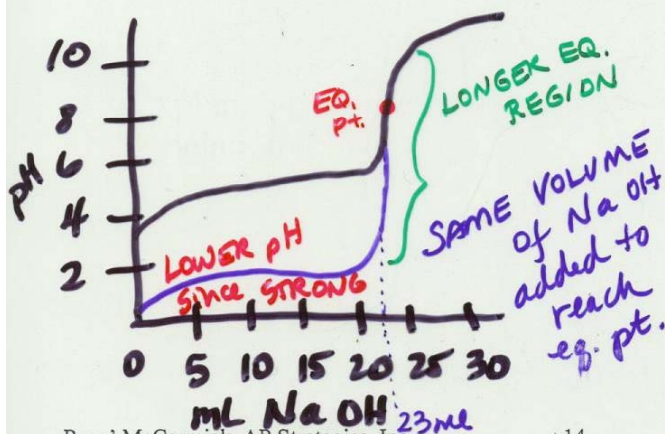 10
8
6
4
2
pH
EQ.
pt.
LONGER EQ.
REGION
LOWER pH
since STRONG
SAME VOLUME
of NaOH
added to
reach
eq. pt.
0 5 10 15 20 25 30
mL NaOH
23ml
AP Strategies, I
14